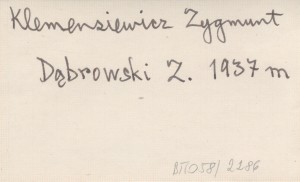 Klemensiewicz Zygmunt
Dąbrowski Z. 1937 m
2286